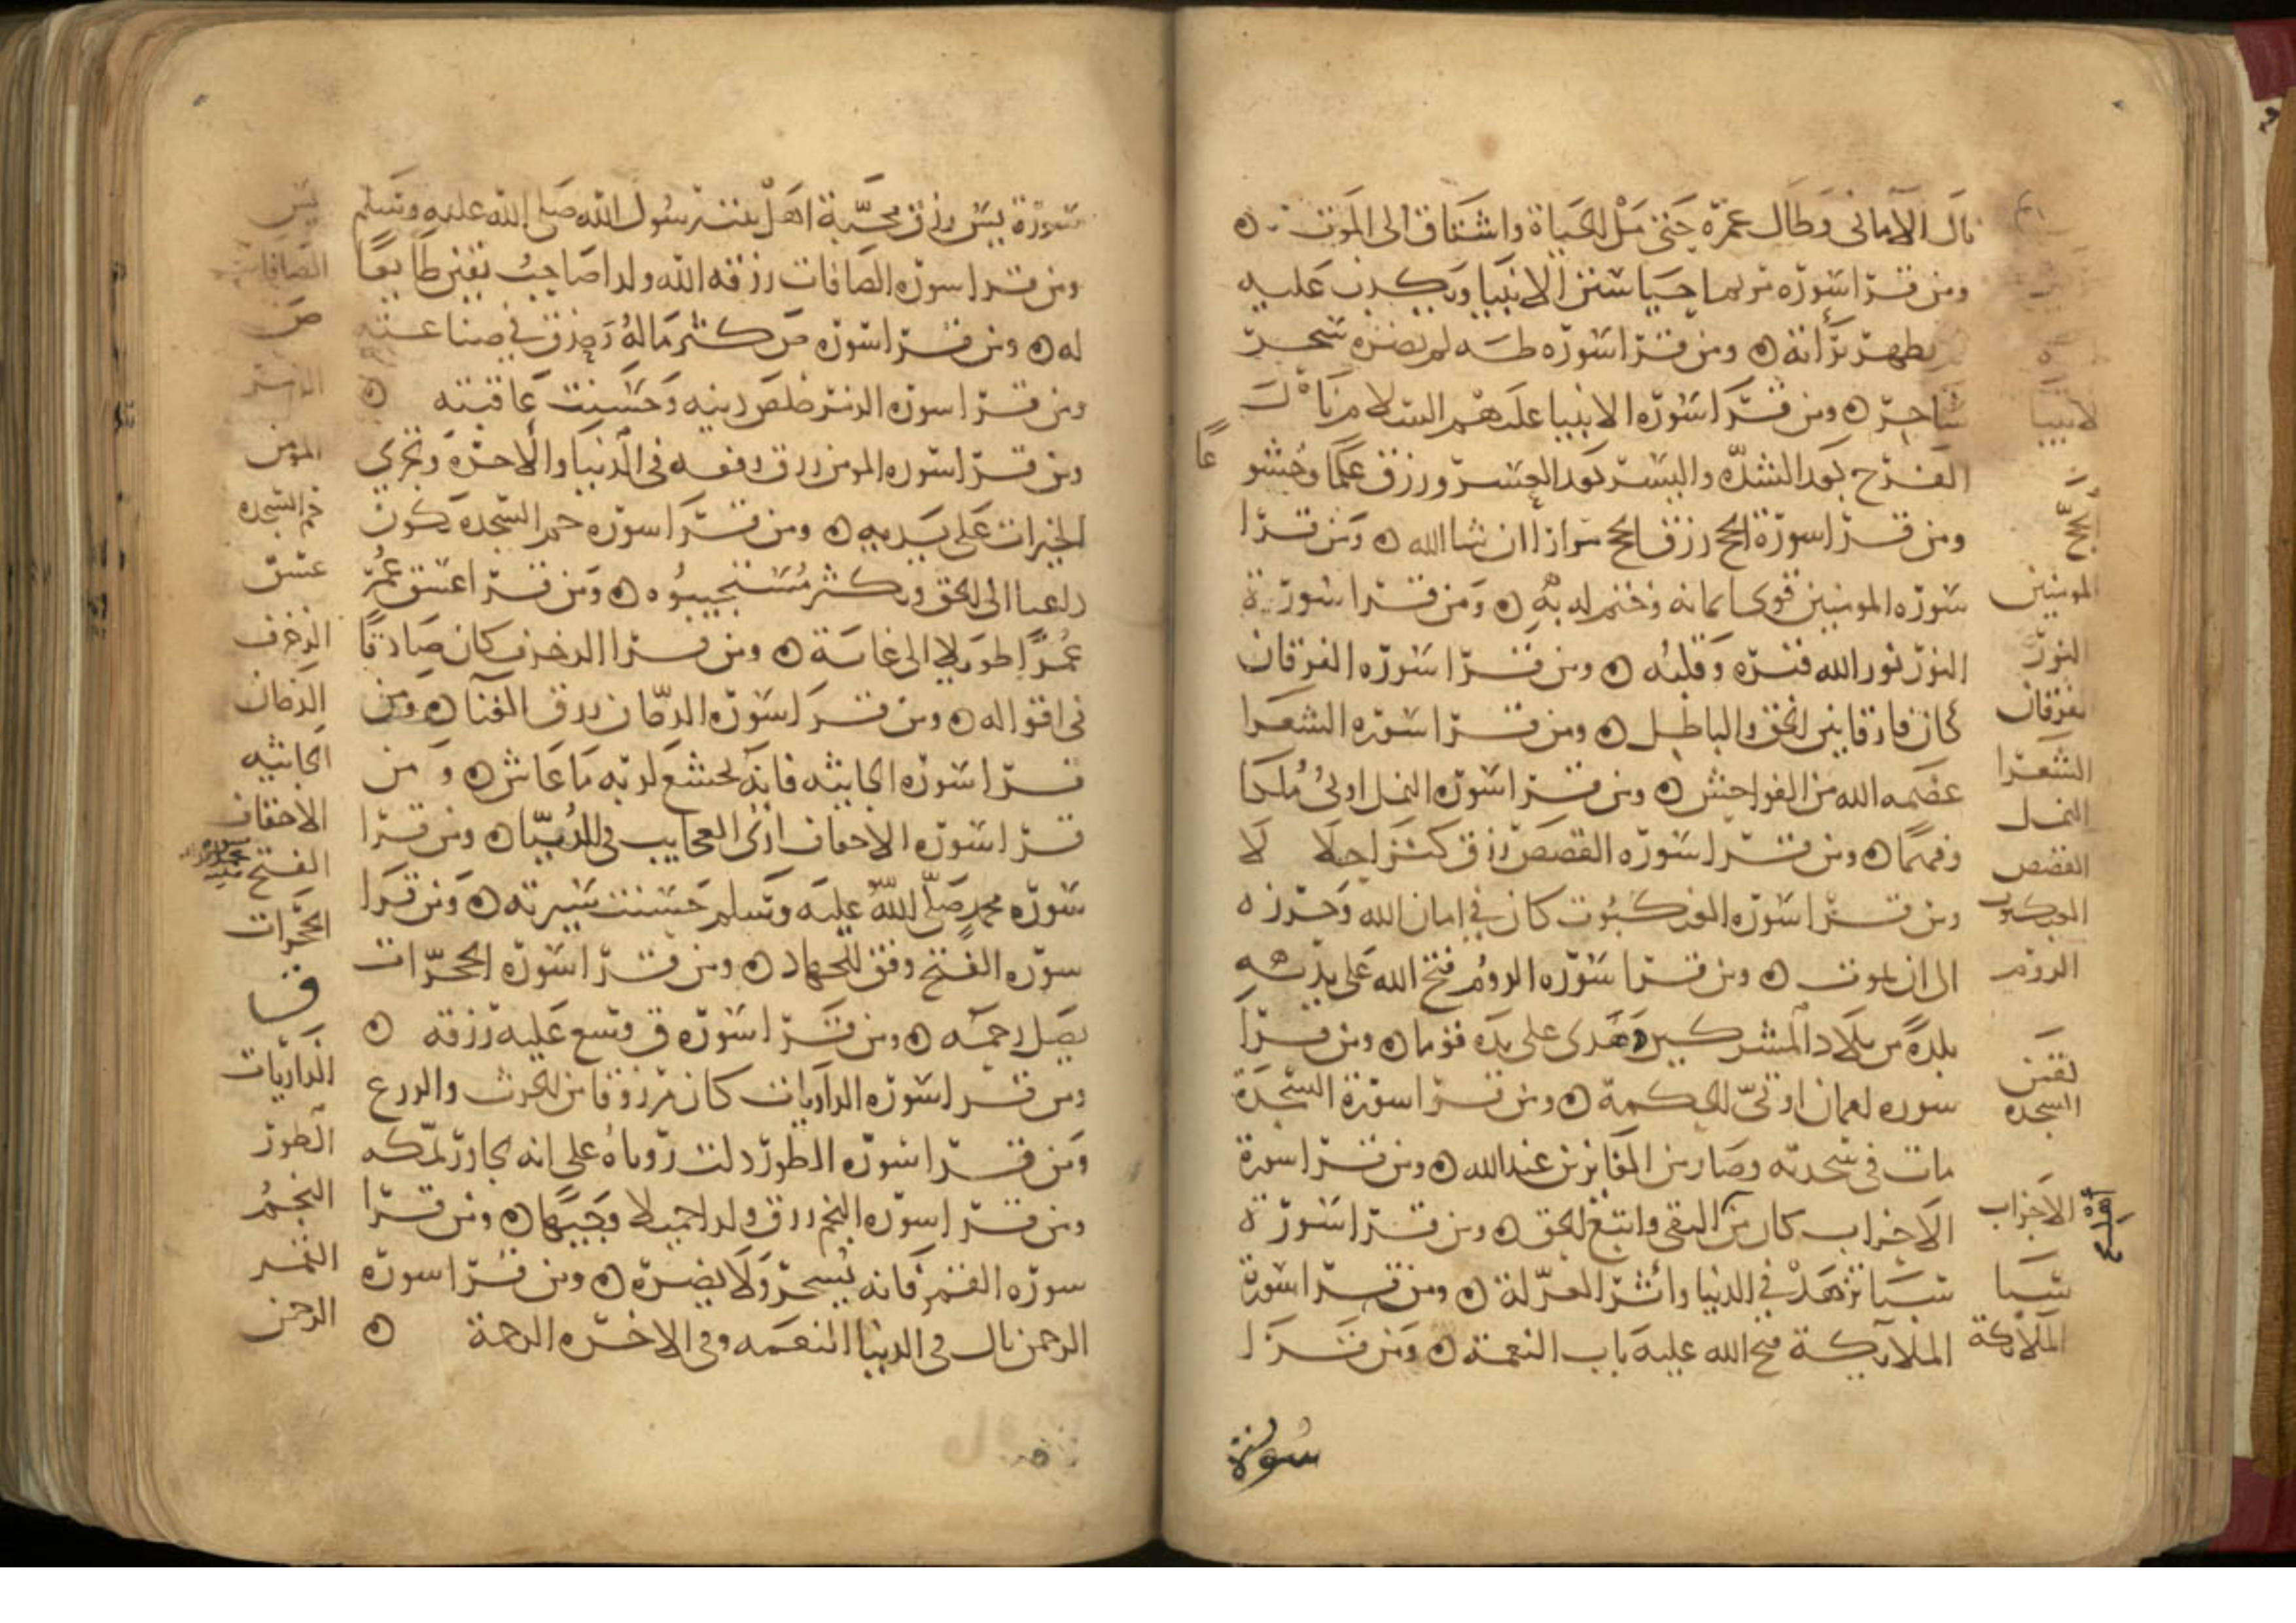 نال الاماني وطال عمره حتى مل الحياة واشتاق الى الموت ۞
ومن قرا سوره مريم احيا سنن الانبيا ويكذب عليه
يظهر براته ۞ ومن قرا سوره طه لم يضره سحر
ساحر ۞ ومن قرا سوره الانبيا عليهم السلام نال
الفرح بعد الشده واليسر بعد العسر ورزق علما وخشوعا
ومن قرا سورة الحج رزق الحج مرارا ان شا الله ۞ ومن قرا
سوره المومنين قوى ايمانه وختم له به ۞ ومن قرا سورة
النور نور الله قبره وقلبه ۞ ومن قرا سوره الفرقان
كان فارقا بين الحق والباطل ۞ ومن قرا سوره الشعرا
عصمه الله من الفواحش ۞ ومن قرا سوره النمل اوتي ملكا
وفهما ۞ ومن قرا سوره القصص رزق كنزا حلالا
ومن قرا سوره العنكبوت كان في امان الله وحرزه
الى ان يموت ۞ ومن قرا سوره الروم فتح الله على يديه
بلدة من بلاد المشركين وهدى على يده قوما ۞ ومن قرا
سوره لقمان اوتي الحكمة ۞ ومن قرا سورة السجدة
مات في سجدته وصار من الفايزين عند الله ۞ ومن قرا سورة
الاحزاب كان من التقى واتبع الحق ۞ ومن قرا سورة
سبا تزهد في الدنيا واثر العزلة ۞ ومن قرا سورة
الملايكة فتح الله عليه باب النعمة ۞ ومن قرا
سورة
الانبيا
الحج
المومنين
النور
الفرقان
الشعرا
النمل
القصص
العنكبوت
الروم
لقمن
السجده
الاحزاب
سبا
الملايكة
سورة يس رزق محبة اهل بيت رسول الله صلى الله عليه وسلم
ومن قرا سوره الصافات رزقه الله ولدا صاحب يقين طايعا
له ۞ ومن قرا سوره ص كثر ماله ورزق في صناعته
ومن قرا سوره الزمر خلص دينه وحسنت عاقبته ۞
ومن قرا سوره المومن رزق رفعه في الدنيا والاخره وتجري
الخيرات على يديه ۞ ومن قرا سوره حم السجده يكون
داعيا الى الحق ويكثر مستجيبوه ۞ ومن قرا عسق عمر
عمرا طويلا الى غايته ۞ ومن قرا الزخرف كان صادقا
في اقواله ۞ ومن قرا سوره الدخان رزق الغنا ۞ ومن
قرا سوره الجاثيه فانه يخشع لربه ما عاش ۞ ومن
قرا سوره الاحقاف اري العجايب في الدنيا ۞ ومن قرا
سوره محمد صلى الله عليه وسلم حسنت سيرته ۞ ومن قرا
سوره الفتح وفق للجهاد ۞ ومن قرا سوره الحجرات
يصل رحمه ۞ ومن قرا سوره ق وسع عليه رزقه ۞
ومن قرا سوره الذاريات كان مرزوقا من الحرث والزرع
ومن قرا سوره الطور دلت روياه على انه يجاور بمكه
ومن قرا سوره النجم رزق ولدا جميلا وجيها ۞ ومن قرا
سوره القمر فانه يسحر ولا يضره ۞ ومن قرا سوره
الرحمن نال في الدنيا النعمه وفي الاخره الرحمة ۞
يس
الصافات
ص
الزمر
المومن
حم السجده
عسق
الزخرف
الدخان
الجاثيه
الاحقاف
الفتح
الحجرات
ق
الذاريات
الطور
النجم
القمر
الرحمن